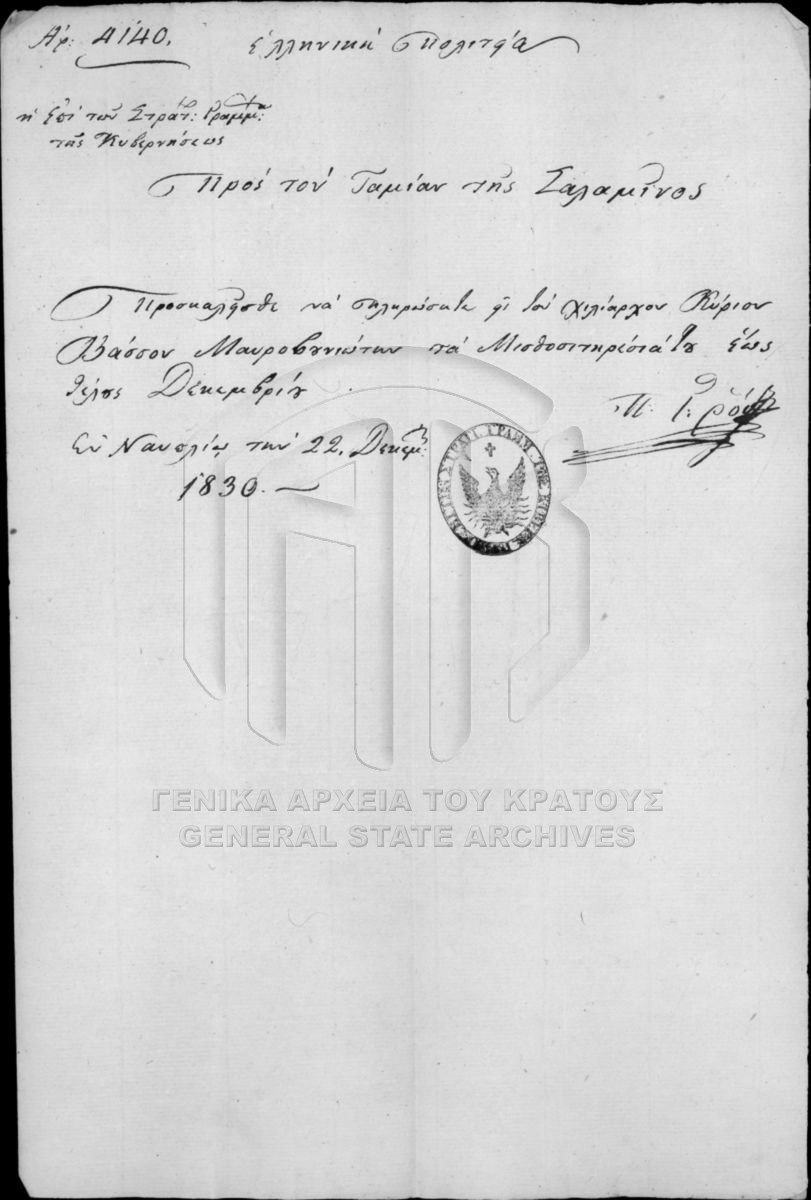 Αρ: 4140. Ἑλληνικὴ Πολιτεία
ἡ Ἐπὶ τῶν Στρατ: Γραμμ:
τῆς Κυβερνήσεως
Πρὸς τὸν Ταμίαν τῆς Σαλαμῖνος
Προσκαλεῖσθε νὰ πληρώσητε εἰς τὸν χιλίαρχον Κύριον
Βάσσον Μαυροβουνιώτην τὰ Μισθοσιτηρέσιά του ἕως
τέλους Δεκεμβρίου
Π. Γ. Ῥόδ
Ἐν Ναυπλίῳ τὴν 22. Δεκεμ:
1830.
ΓΕΝΙΚΑ ΑΡΧΕΙΑ ΤΟΥ ΚΡΑΤΟΥΣ
GENERAL STATE ARCHIVES